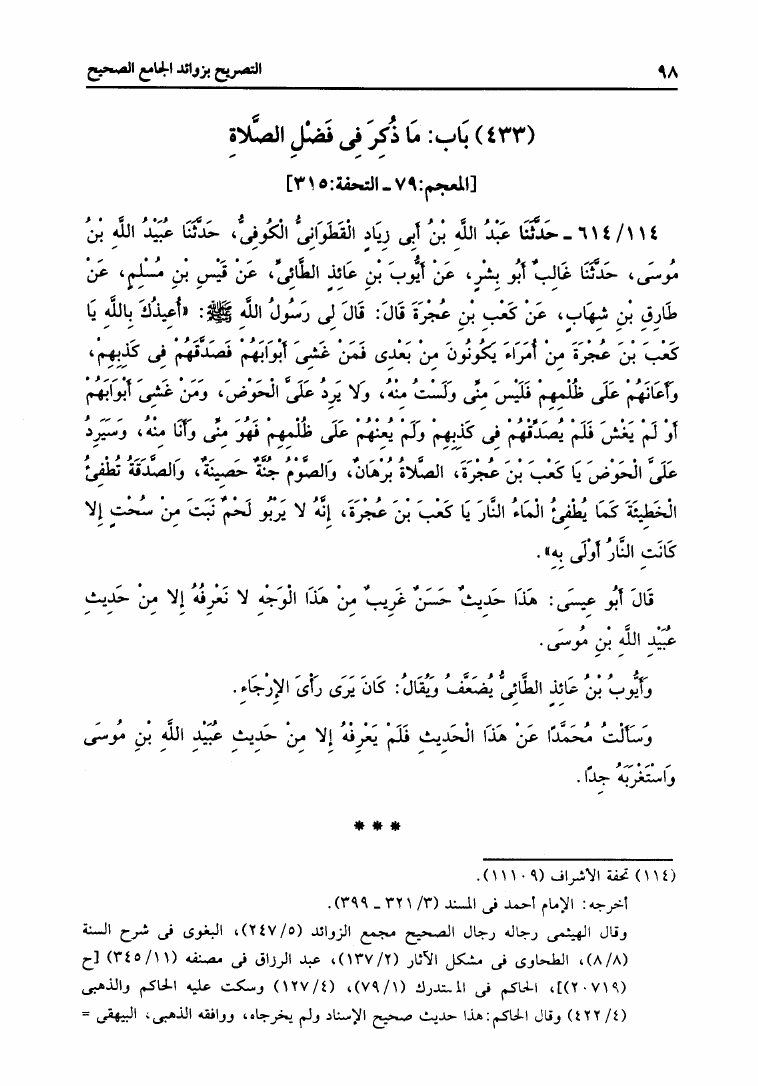 ٩٨ التصريح بزوائد الجامع الصحيح
(٤٣٣) بَاب: مَا ذُكِرَ فِى فَضْلِ الصَّلَاةِ
[المعجم:٧٩ ـ التحفة:٣١٥]
٦١٤/١١٤ ـ حَدَّثَنَا عَبْدُ اللَّهِ بْنُ أَبِى زِيَادٍ الْقَطَوَانِىُّ الْكُوفِىُّ، حَدَّثَنَا عُبَيْدُ اللَّهِ بْنُ
مُوسَى، حَدَّثَنَا غَالِبٌ أَبُو بِشْرٍ، عَنْ أَيُّوبَ بْنِ عَائِذٍ الطَّائِىِّ، عَنْ قَيْسِ بْنِ مُسْلِمٍ، عَنْ
طَارِقِ بْنِ شِهَابٍ، عَنْ كَعْبِ بْنِ عُجْرَةَ قَالَ: قَالَ لِى رَسُولُ اللَّهِ ﷺ: «أُعِيذُكَ بِاللَّهِ يَا
كَعْبَ بْنَ عُجْرَةَ مِنْ أُمَرَاءَ يَكُونُونَ مِنْ بَعْدِى فَمَنْ غَشِىَ أَبْوَابَهُمْ فَصَدَّقَهُمْ فِى كَذِبِهِمْ،
وَأَعَانَهُمْ عَلَى ظُلْمِهِمْ فَلَيْسَ مِنِّى وَلَسْتُ مِنْهُ، وَلَا يَرِدُ عَلَىَّ الْحَوْضَ، وَمَنْ غَشِىَ أَبْوَابَهُمْ
أَوْ لَمْ يَغْشَ فَلَمْ يُصَدِّقْهُمْ فِى كَذِبِهِمْ وَلَمْ يُعِنْهُمْ عَلَى ظُلْمِهِمْ فَهُوَ مِنِّى وَأَنَا مِنْهُ، وَسَيَرِدُ
عَلَىَّ الْحَوْضَ يَا كَعْبَ بْنَ عُجْرَةَ، الصَّلَاةُ بُرْهَانٌ، وَالصَّوْمُ جُنَّةٌ حَصِينَةٌ، وَالصَّدَقَةُ تُطْفِئُ
الْخَطِيئَةَ كَمَا يُطْفِئُ الْمَاءُ النَّارَ يَا كَعْبَ بْنَ عُجْرَةَ، إِنَّهُ لَا يَرْبُو لَحْمٌ نَبَتَ مِنْ سُحْتٍ إِلَا
كَانَتِ النَّارُ أَوْلَى بِهِ».
قَالَ أَبُو عِيسَى: هَذَا حَدِيثٌ حَسَنٌ غَرِيبٌ مِنْ هَذَا الْوَجْهِ لَا نَعْرِفُهُ إِلَا مِنْ حَدِيثِ
عُبَيْدِ اللَّهِ بْنِ مُوسَى.
وَأَيُّوبُ بْنُ عَائِذٍ الطَّائِىُّ يُضَعَّفُ وَيُقَالُ: كَانَ يَرَى رَأْىَ الإِرْجَاءِ.
وَسَأَلْتُ مُحَمَّدًا عَنْ هَذَا الْحَدِيثِ فَلَمْ يَعْرِفْهُ إِلَا مِنْ حَدِيثِ عُبَيْدِ اللَّهِ بْنِ مُوسَى
وَاسْتَغْرَبَهُ جِدًا.
* * *
(١١٤) تحفة الأشراف (١١١٠٩).
أخرجه: الإمام أحمد فى المسند (٣/ ٣٢١ ـ ٣٩٩).
وقال الهيثمى رجاله رجال الصحيح مجمع الزوائد (٢٤٧/٥)، البغوى فى شرح السنة
(٨/٨)، الطحاوى فى مشكل الآثار (١٣٧/٢)، عبد الرزاق فى مصنفه (٣٤٥/١١) [ح
(٢٠٧١٩)]، الحاكم فى المستدرك (٧٩/١)، (١٢٧/٤) وسكت عليه الحاكم والذهبى
(٤٢٢/٤) وقال الحاكم: هذا حديث صحيح الإسناد ولم يخرجاه، ووافقه الذهبى، البيهقى =